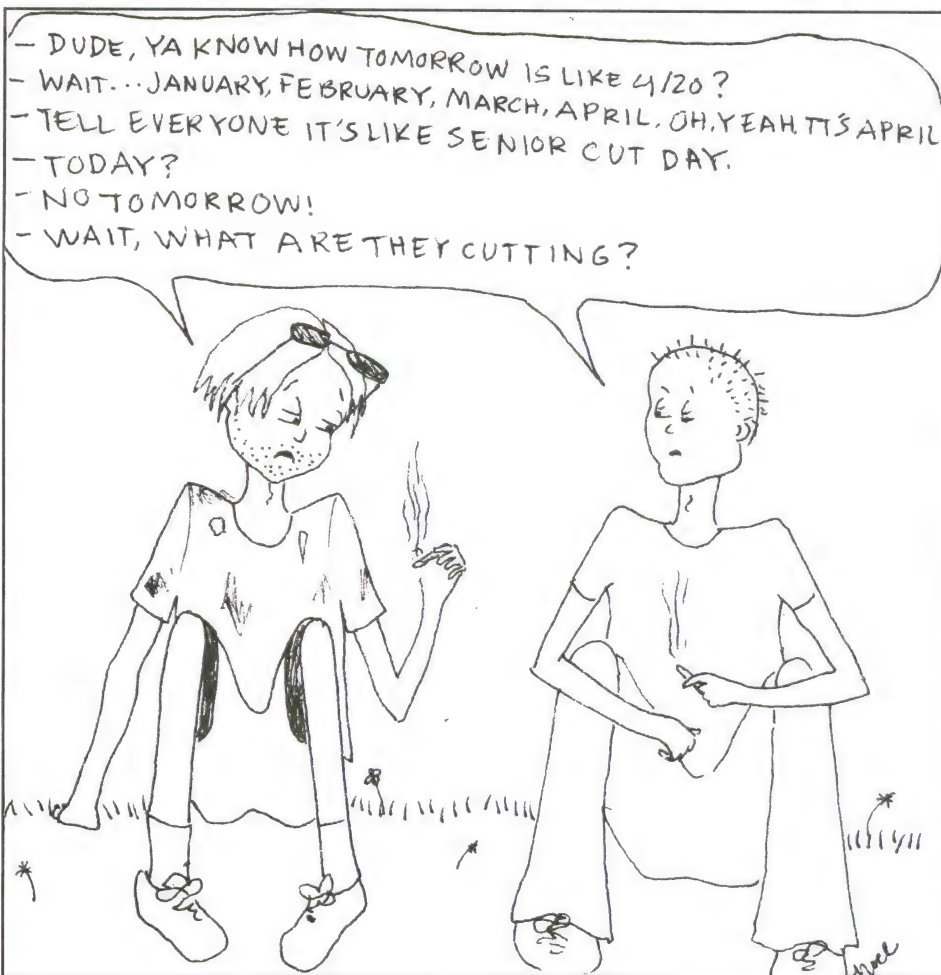 - DUDE, YA KNOW HOW TOMORROW IS LIKE 4/20?
- WAIT... JANUARY, FEBRUARY, MARCH, APRIL. OH, YEAH. IT'S APRIL
- TELL EVERYONE IT'S LIKE SENIOR CUT DAY.
- TODAY?
- NO TOMORROW!
- WAIT, WHAT ARE THEY CUTTING?